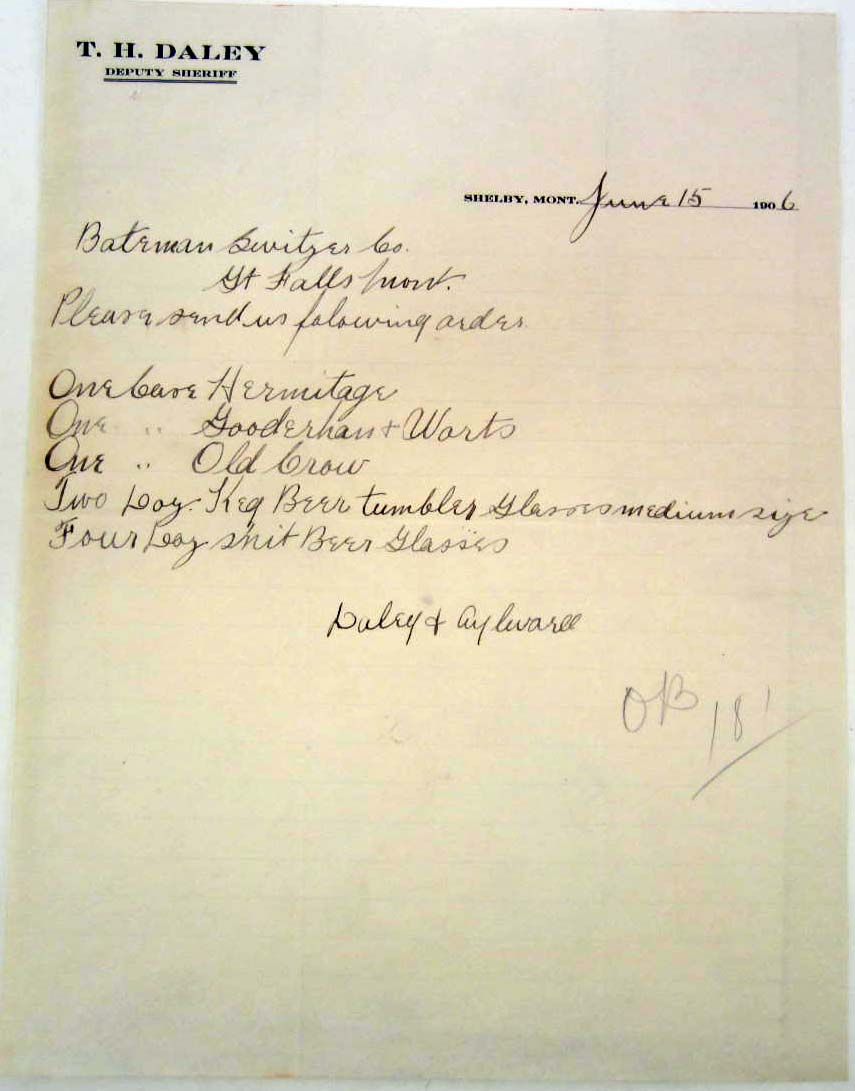 T. H. DALEY
DEPUTY SHERIFF
SHELBY, MONT. June 15 1906
Bateman Switzer Co.
Gt Falls Mont.
Please send us folowing order
One Case Hermitage
One " Gooderham & Worts
One " Old Crow
Two Doz. Keg Beer tumbler Glasses medium size
Four Doz shit Beer Glasses
Daley & Aylward
OB 181